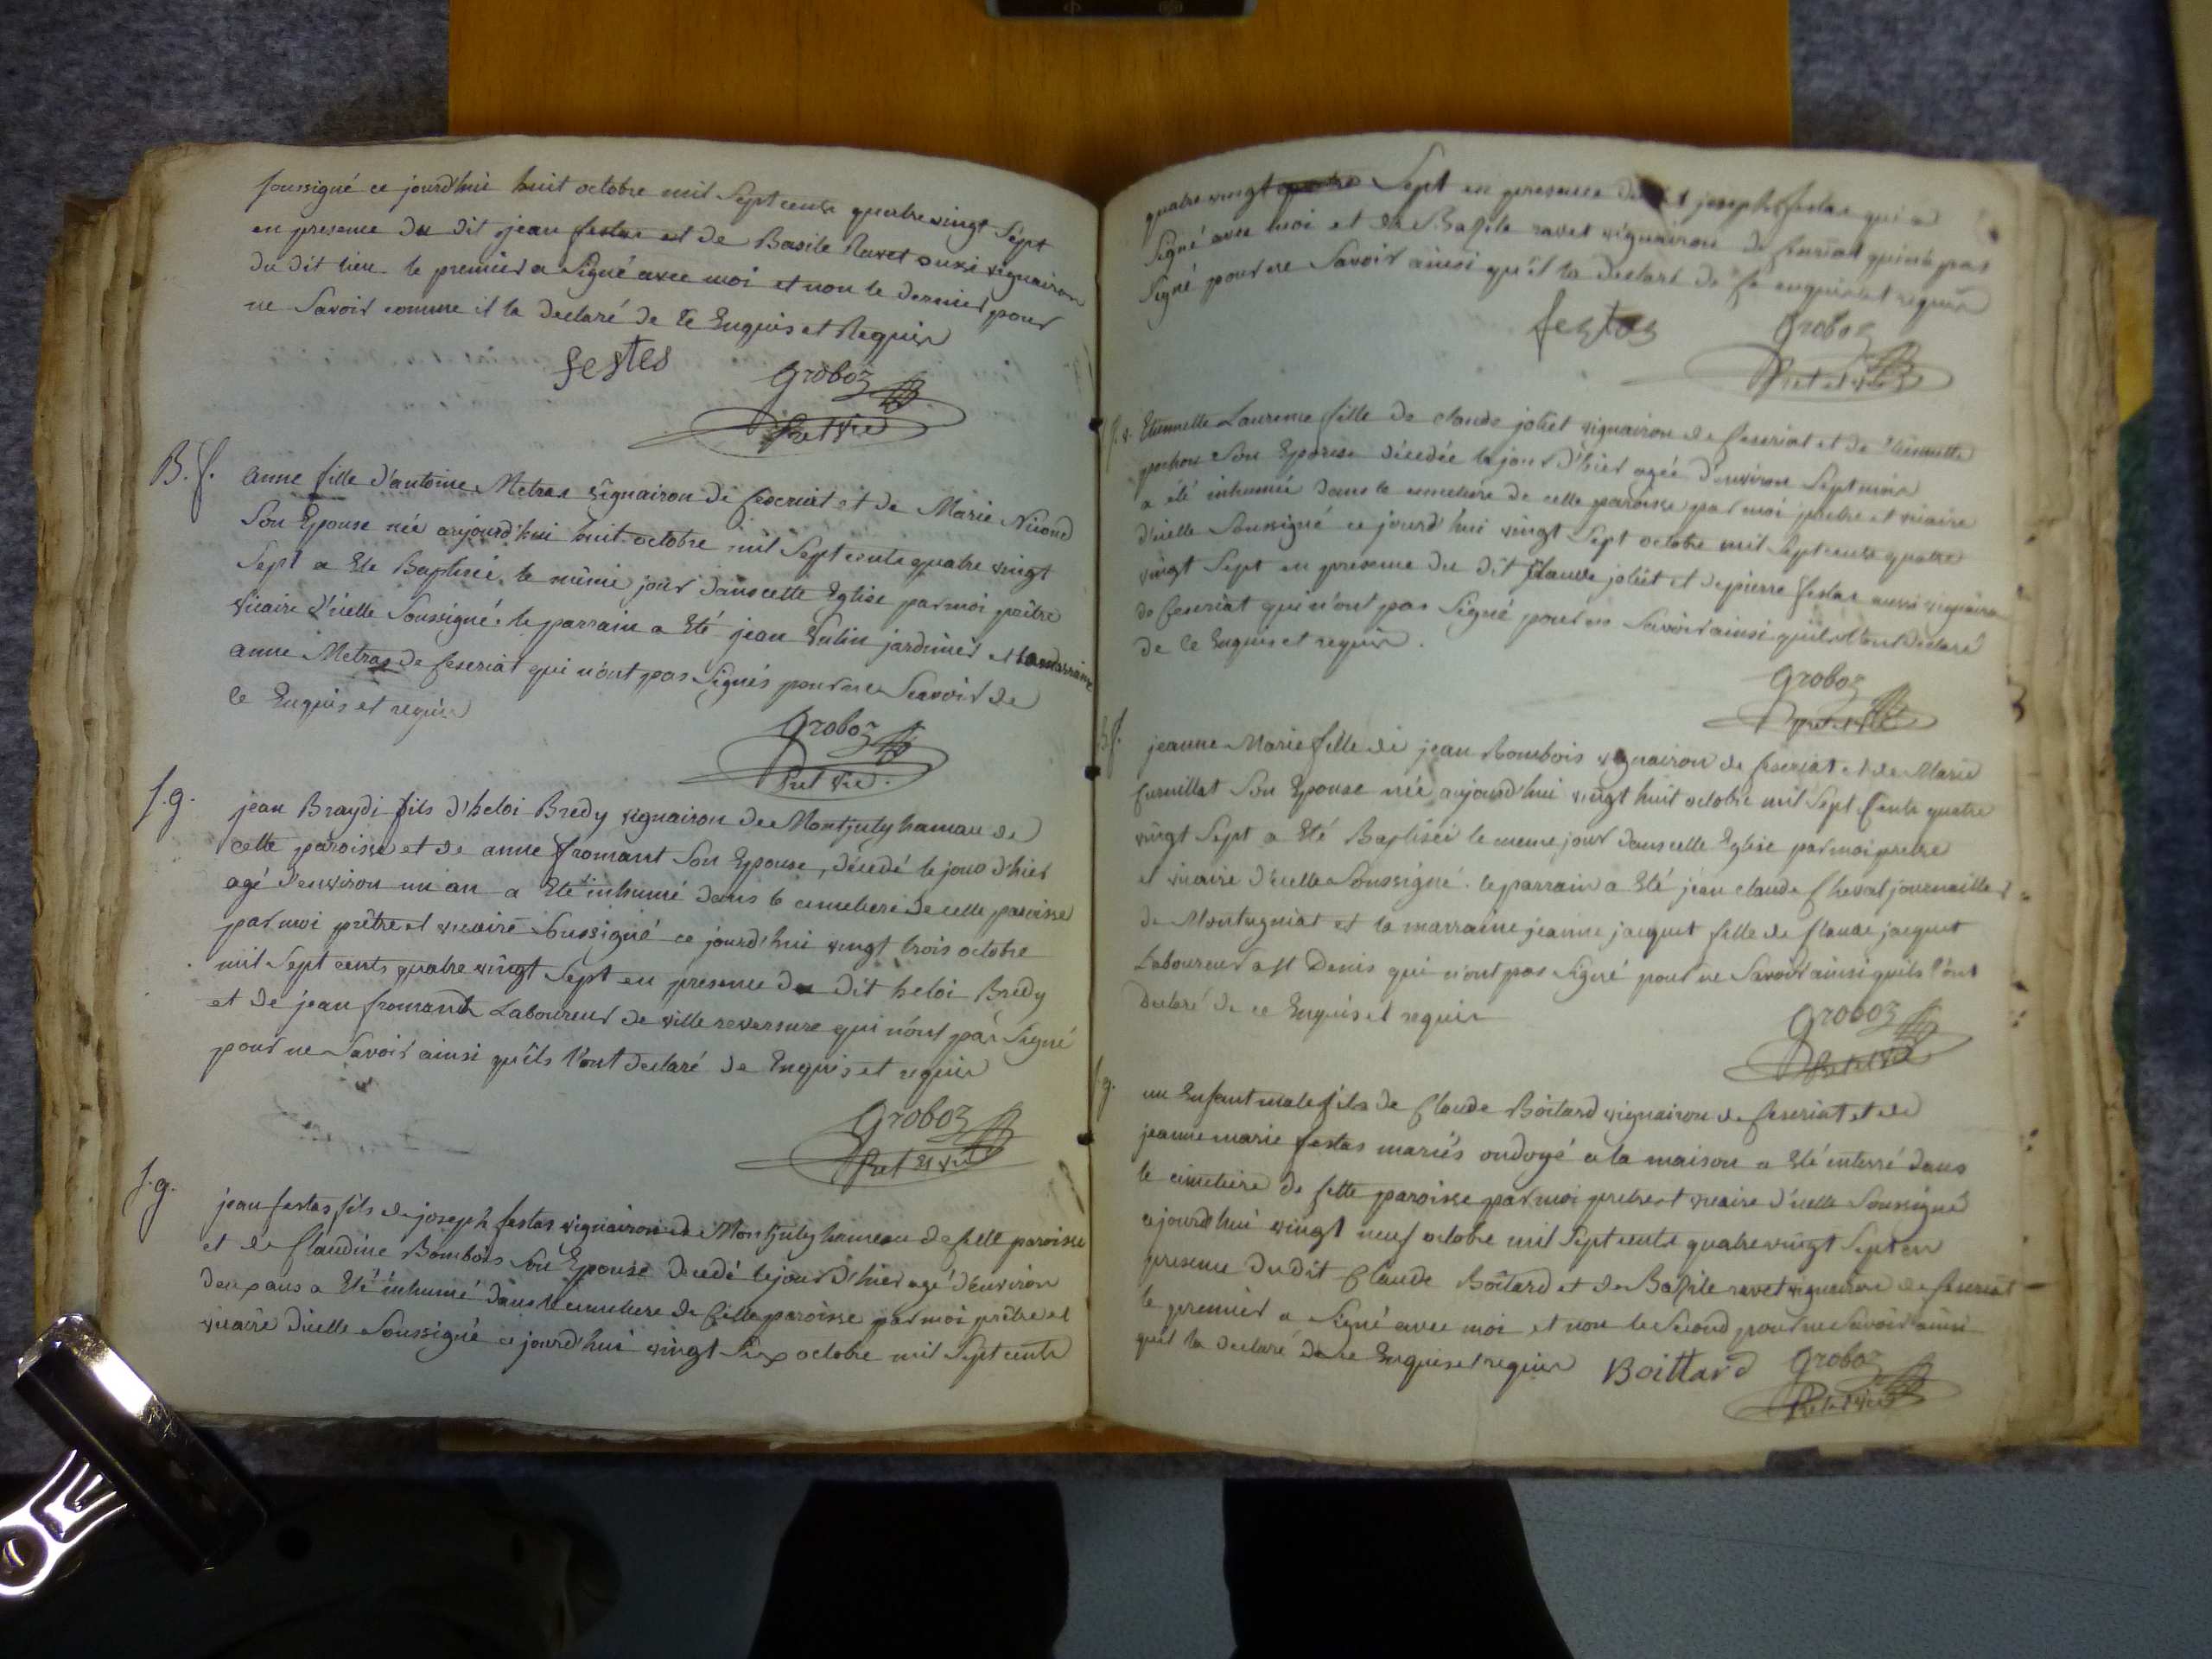 soussigné ce jourd'hui huit octobre mil Sept cents quatre vingt Sept
en presence du dit jean festas et de Basile Ravet aussi vignairon
du dit lieu le premier a Signé avec moi et non le dernier pour
ne Savoir comme il la declaré de ce Enquis et Requis
festes
Groboz
Pret vic
B. f.
anne fille d'antoine Metras vignairon de seseriat et de Marie Nicond
Son Epouse née aujourd'hui huit octobre mil Sept cents quatre vingt
Sept a Ete Baptisée le même jour dans cette Eglise par moi prêtre
vicaire d'icelle Soussigné. le parrain a Eté jean Vulin jardinier et la marraine
anne Metras de seseriat qui n'ont pas Signés pour ne Scavoir de
ce Enquis et requis
Groboz
Pret vic.
f.g.
jean Braydi fils d'heloi Bredy vignairon de Montjuly hamau de
cette paroisse et de anne fromant Son Epouse, décédé le jour d'hier
agé d'environ un an a Ete inhumé dans le cimetiere de cette paroisse
par moi prêtre et vicaire Soussigné ce jourd'hui vingt trois octobre
mil Sept cents quatre vingt Sept en presence du dit heloi Bredy
et de jean fromant Laboureur de villereversure qui n'ont pas Signé
pour ne Savoir ainsi qu'ils l'ont declaré de Enquis et requis
Groboz
Pret et vic
f.g.
jean festas fils de joseph festas vignairon de Montjuly hameau de cette paroisse
et de Claudine Bombois Son Epouse decedé le jour d'hier agé d'environ
deux ans a Eté inhumé dans le cimetiere de cette paroisse par moi prêtre et
vicaire d'icelle Soussigné ce jourd'hui vingt Six octobre mil Sept cents
quatre vingt quatre Sept en presence du dit joseph festas qui a
Signé avec moi et de Basile ravet vignairon de seseriat qui n'a pas
Signé pour ne Savoir ainsi qu'il la declaré de ce enquis et requis
festas
Groboz
Pret et vic
f. g. Etiennette Laurence fille de claude joliet vignairon de seseriat et de Etiennette
pochon Son Epouse décédée le jour d'hier agée d'environ Sept mois
a été inhumée dans le cimetiere de cette paroisse par moi prêtre et vicaire
d'icelle Soussigné ce jourd'hui vingt Sept octobre mil Sept cents quatre
vingt Sept en presence du dit Claude joliet et de pierre festas aussi vignairon
de seseriat qui n'ont pas Signé pour ne Savoir ainsi qu'ils l'ont declaré
de ce Enquis et requis.
Groboz
pret et vic
B f.
jeanne Marie fille de jean Bombois vignairon de seseriat et de Marie
Son Epouse née aujourd'hui vingt huit octobre mil Sept Cents quatre
vingt Sept a Eté Baptisée le meme jour dans cette Eglise par moi pretre
et vicaire d'icelle Soussigné. le parrain a Eté jean claude Cheval journaillier
de Montagniat et la marraine jeanne jacquet fille de Claude jacquet
Laboureur a St Denis qui n'ont pas Signé pour ne Savoir ainsi quils l'ont
declaré de ce Enquis et requis
Groboz
Pret et vic
f g.
un Enfant male fils de Claude Boitard vignairon de seseriat et de
jeanne marie festas mariés ondoyé a la maison a Eté enterré dans
le cimetiere de cette paroisse par moi pretre et vicaire d'icelle Soussigné
cejourd'hui vingt neuf octobre mil Sept cents quatre vingt Sept en
presence du dit Claude Boitard et de Basile ravet vignairon de seseriat
le premier a Signé avec moi et non le Second pour ne Savoir ainsi
qu'il la declaré de ce Enquis et requis Boittard Groboz
Pret et vic